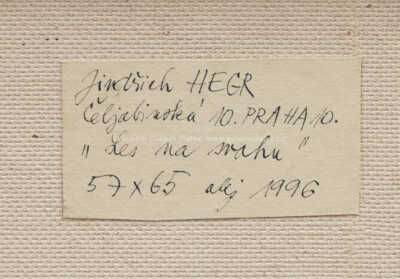 Jindřich HEGR
Čeljabinská 10. PRAHA 10.
„Les na svahu"
57 x 65 olej 1996